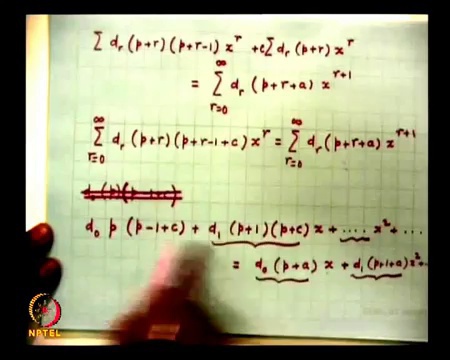 ∑ d_r (p+r)(p+r-1) x^r + c∑ d_r (p+r) x^r
= ∑_{r=0}^{∞} d_r (p+r+a) x^{r+1}
∑_{r=0}^{∞} d_r (p+r)(p+r-1+c) x^r = ∑_{r=0}^{∞} d_r (p+r+a) x^{r+1}
d_0 p (p-1+c) + d_1 (p+1)(p+c) x + .... x^2 + ...
= d_0 (p+a) x + d_1 (p+1+a) x^2 ..
NPTEL